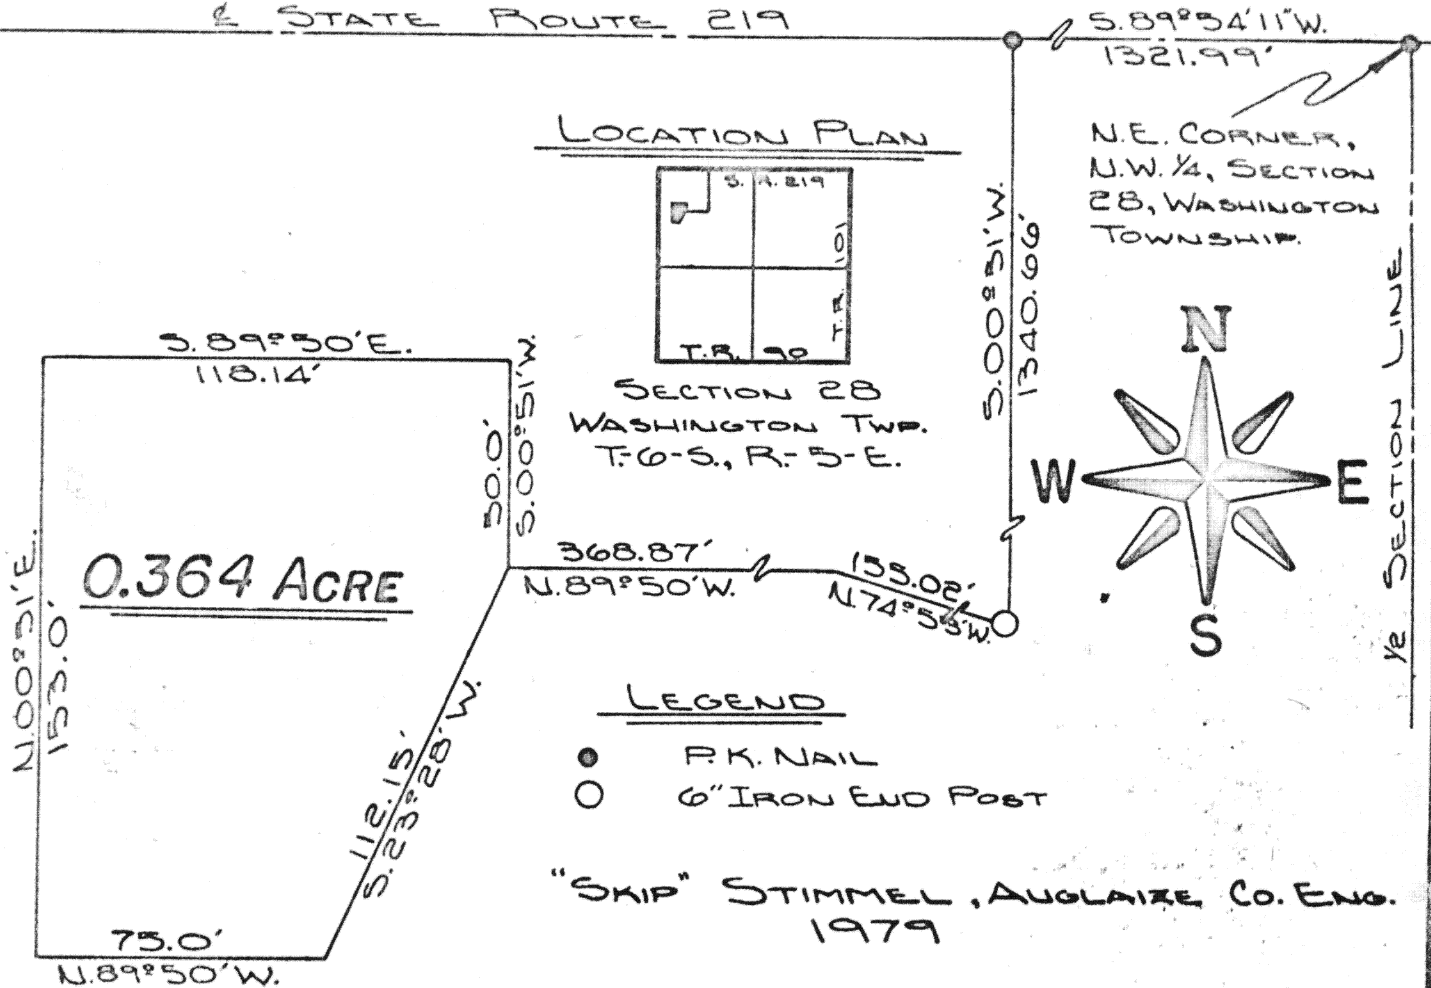 ℄ STATE ROUTE 219
S.89°54'11"W.
1321.99'
N.E. CORNER,
N.W. ¼, SECTION
28, WASHINGTON
TOWNSHIP.
LOCATION PLAN
S. R. 219
T.R. 101
T.R. 90
SECTION 28
WASHINGTON TWP.
T-6-S., R-5-E.
S.00°31'W.
1340.66'
½ SECTION LINE
N
W E
S
S.89°50'E.
118.14'
50.0'
S.00°51'W.
368.87'
N.89°50'W.
155.02'
N.74°53'W.
0.364 ACRE
N.00°31'E.
153.0'
112.15'
S.23°28'W.
75.0'
N.89°50'W.
LEGEND
P.K. NAIL
6" IRON END POST
"SKIP" STIMMEL, AUGLAIZE CO. ENG.
1979